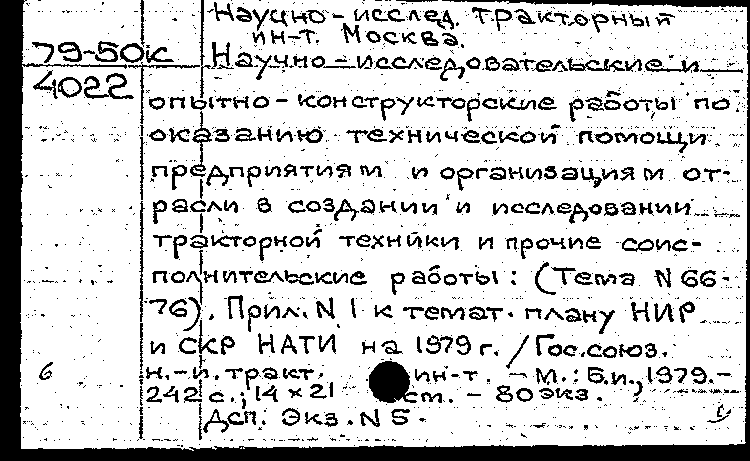 Научно-исслед. тракторный
ин-т. Москва.
79-50к
Научно-исследовательские и
4022
опытно-конструкторские работы по
оказанию технической помощи
предприятиям и организациям от-
расли в создании и исследовании
тракторной техники и прочие соис-
полнительские работы: (Тема N 66-
76). Прил. N 1 к темат. плану НИР
и СКР НАТИ на 1979 г. / Гос. союз.
6
н.-и. тракт. ин-т. - М.: Б.и., 1979.-
242 с.; 14 × 21 см. - 80 экз.
Дсп. Экз. N 5.